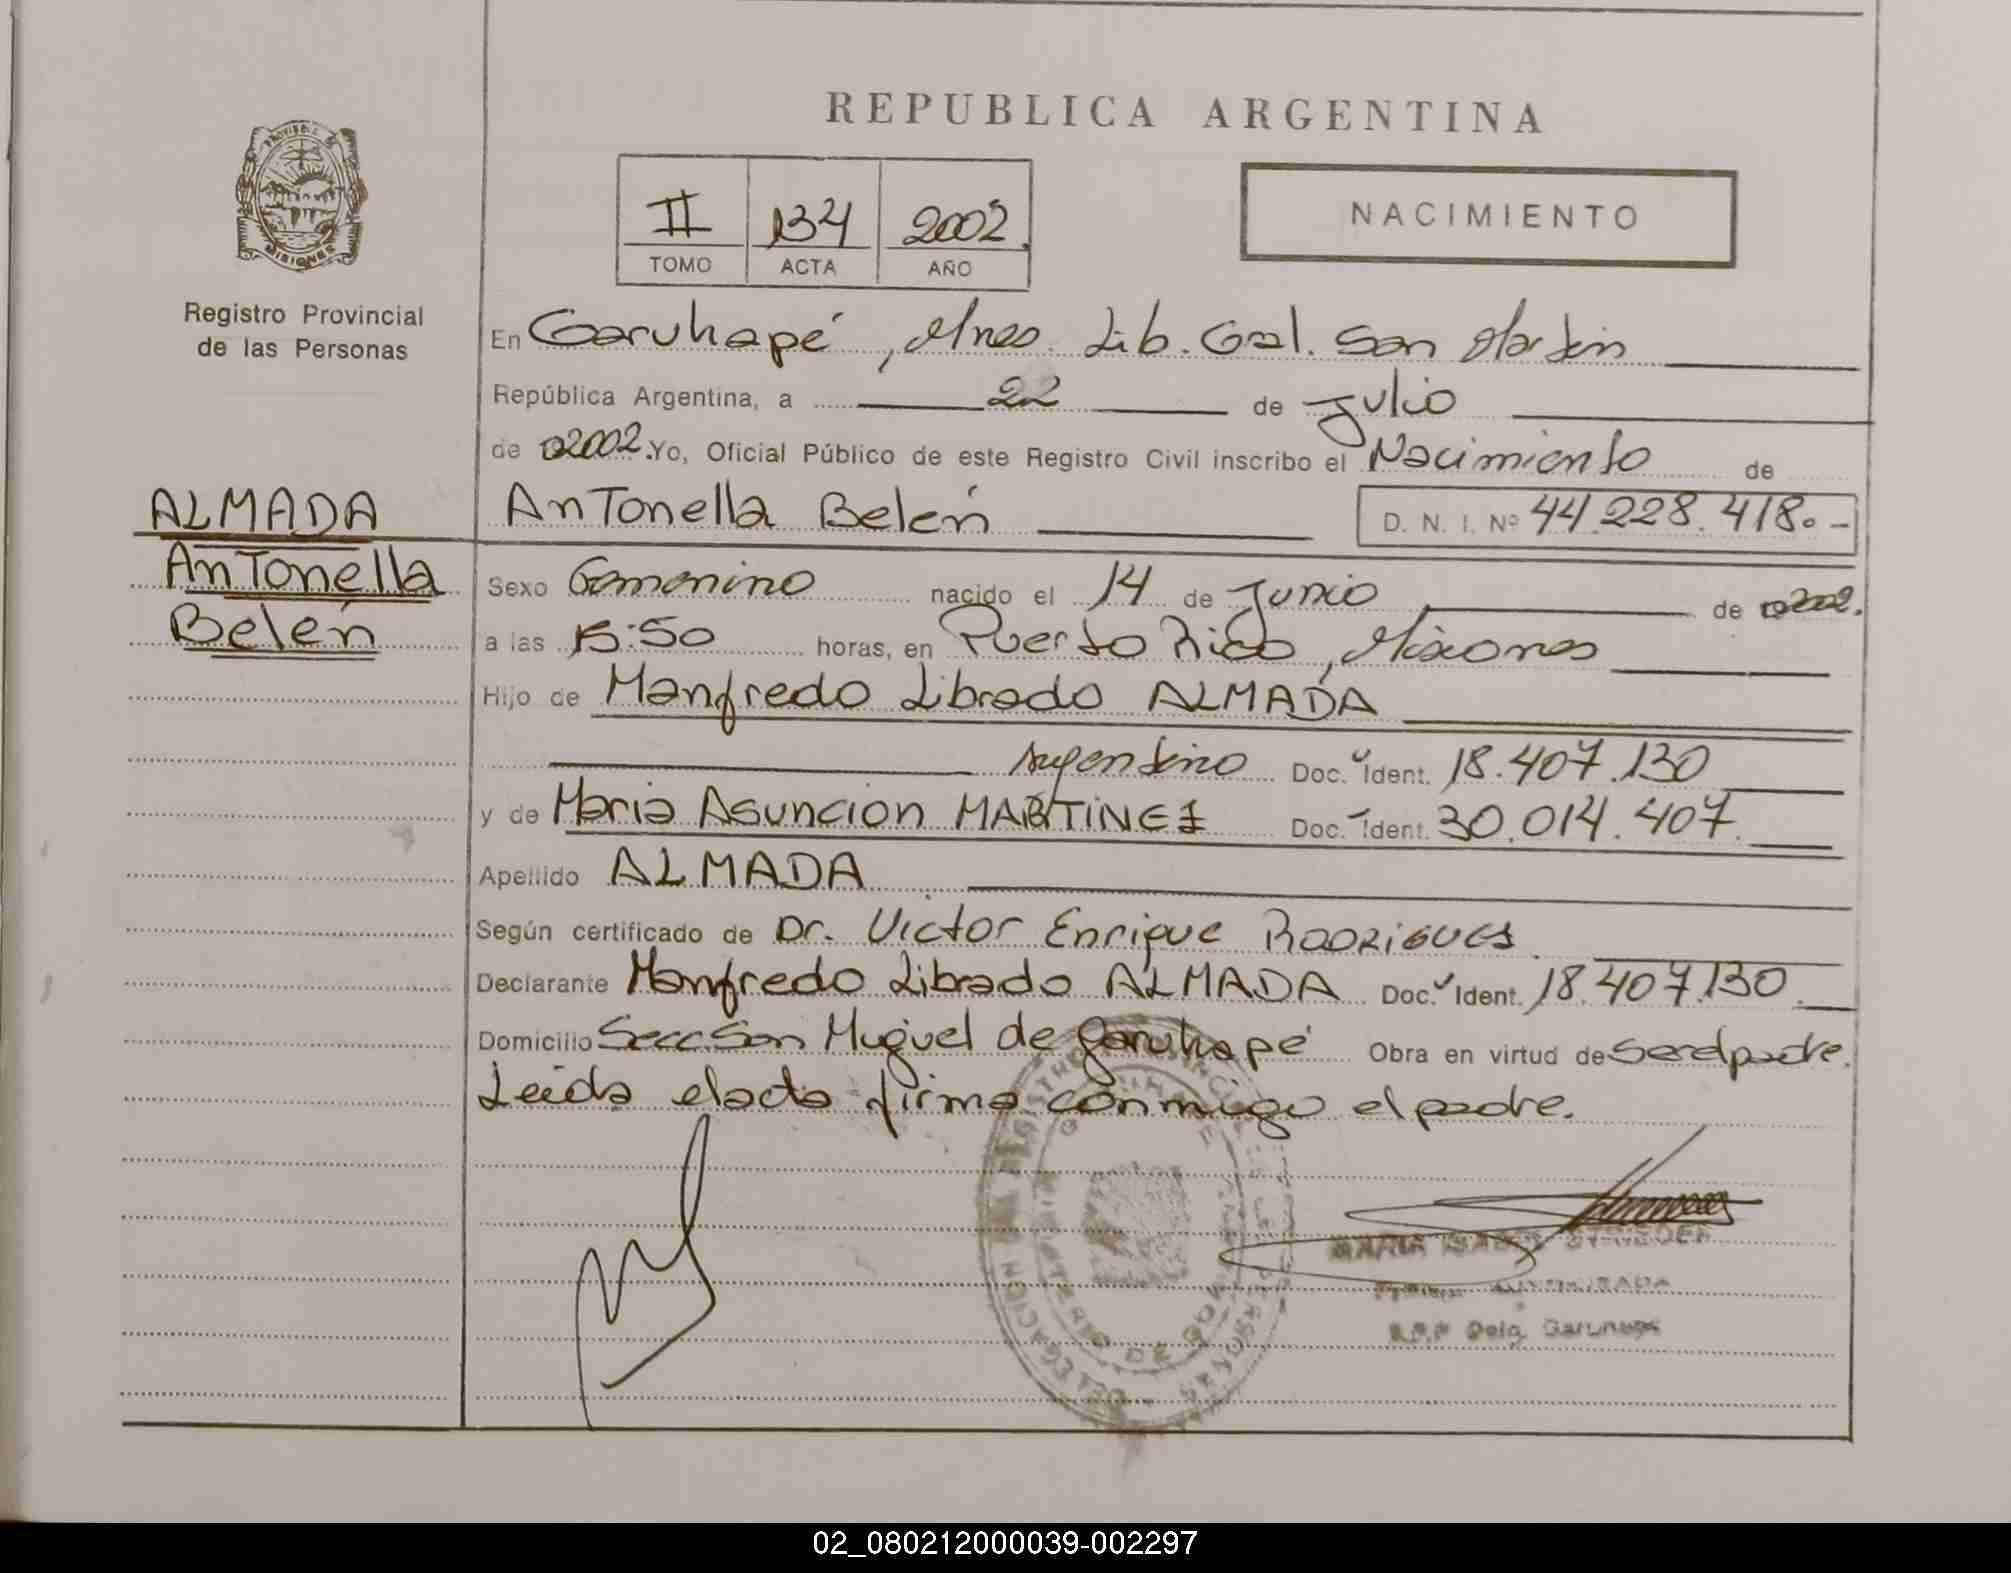 REPUBLICA ARGENTINA
PROVINCIA DE
MISIONES
Registro Provincial
de las Personas
II 134 2002
TOMO ACTA AÑO
NACIMIENTO
En Garuhapé, Mnes. Lib. Gral. San Martin
República Argentina, a 22 de Julio
de 2002. Yo, Oficial Público de este Registro Civil inscribo el Nacimiento de
ALMADA
Antonella
Belén
Antonella Belén D. N. I. Nº 44.228.418.-
Sexo Femenino nacido el 14 de Junio de 2002.
a las 15:50 horas, en Puerto Rico, Misiones
Hijo de Manfredo Librado ALMADA
Argentino Doc. Ident. 18.407.130
y de Maria Asuncion MARTINEZ Doc. Ident. 30.014.407.
Apellido ALMADA
Según certificado de Dr. Victor Enrique RODRIGUES
Declarante Manfredo Librado ALMADA Doc. Ident. 18.407.130.
Domicilio Secc. San Miguel de Garuhapé Obra en virtud de ser el padre.
Leída el acta firma conmigo el padre.
MARIA ISABEL
AUTORIZADA
R.P.P Deleg. Garuhapé
DELEGACION
MINISTERIO DE GOBIERNO
02_080212000039-002297